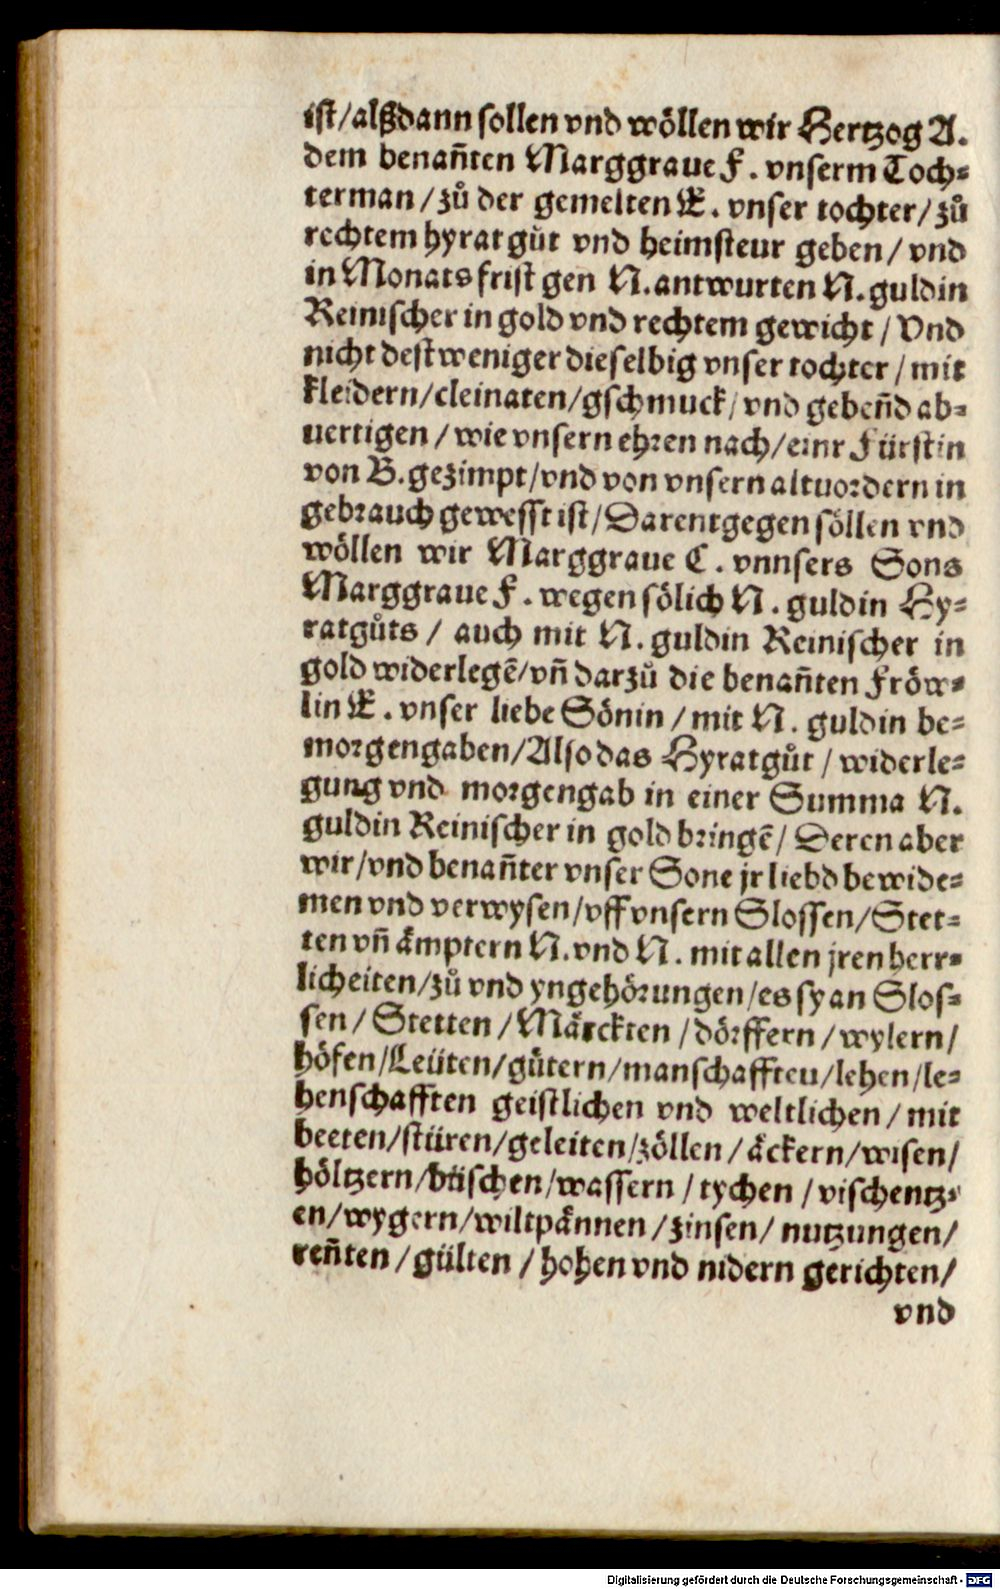 ist/alßdann sollen vnd wöllen wir Hertzog A.
dem benañten Marggraue F. vnserm Toch⸗
terman/zů der gemelten E. vnser tochter/zů
rechtem hyratgůt vnd heimsteur geben/vnd
in Monats frist gen N.antwurten N.guldin
Reinischer in gold vnd rechtem gewicht/Vnd
nicht destweniger dieselbig vnser tochter/mit
kleidern/cleinaten/gschmuck/vnd gebeñd ab⸗
uertigen/wie vnsern ehren nach/einr Fürstin
von B.gezimpt/vnd von vnsern altuordern in
gebrauch gewesst ist/Darentgegen söllen vnd
wöllen wir Marggraue C. vnnsers Sons
Marggraue F. wegen sölich N. guldin Hy⸗
ratgůts/auch mit N. guldin Reinischer in
gold widerlegē/vñ darzů die benañten Fröw⸗
lin E. vnser liebe Sönin/mit N. guldin be⸗
morgengaben/Also das Hyratgůt/widerle⸗
gung vnd morgengab in einer Summa N.
guldin Reinischer in gold bringē/Deren aber
wir/vnd benañter vnser Sone jr liebd bewide⸗
men vnd verwysen/vff vnsern Slossen/Stet⸗
ten vñ ämptern N.vnd N. mit allen jren herr⸗
licheiten/zů vnd yngehörungen/es sy an Slos⸗
sen/Stetten/Märckten/dörffern/wylern/
höfen/Leüten/gütern/manschafften/lehen/le⸗
henschafften geistlichen vnd weltlichen/mit
beeten/stüren/geleiten/zöllen/äckern/wisen/
höltzern/büschen/wassern/tychen/vischentz⸗
en/wygern/wiltpännen/zinsen/nutzungen/
reñten/gülten/hohen vnd nidern gerichten/
vnd
Digitalisierung gefördert durch die Deutsche Forschungsgemeinschaft - DFG